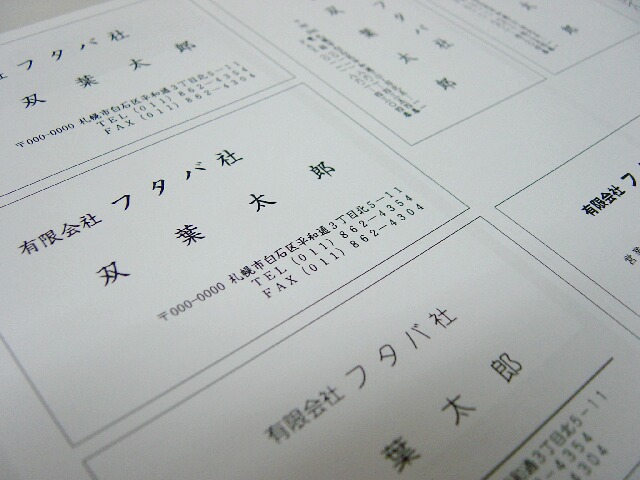 フタバ社
双葉太郎
〒000-0000 札幌市白石区平和通3丁目北5-11
TEL (011) 862-4354
FAX (011) 862-4304
フタバ社
葉太郎
有限会社 フタバ社
双葉太郎
〒000-0000 札幌市白石区平和通3丁目北5-11
TEL (011) 862-4354
FAX (011) 862-4304
有限会社
営業
有限会社 フタバ社
葉太郎
通3丁目北5-11
862-4354
862-4304